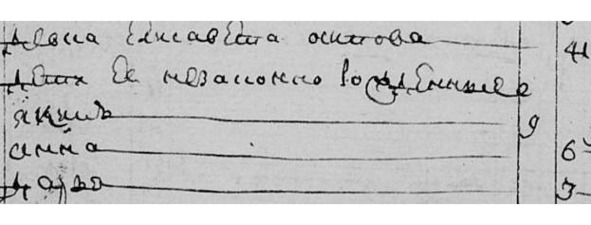 девка Елисавета осипова 41
дети Ее незаконно рожденные
якимъ 9
анна 6
дарья 3